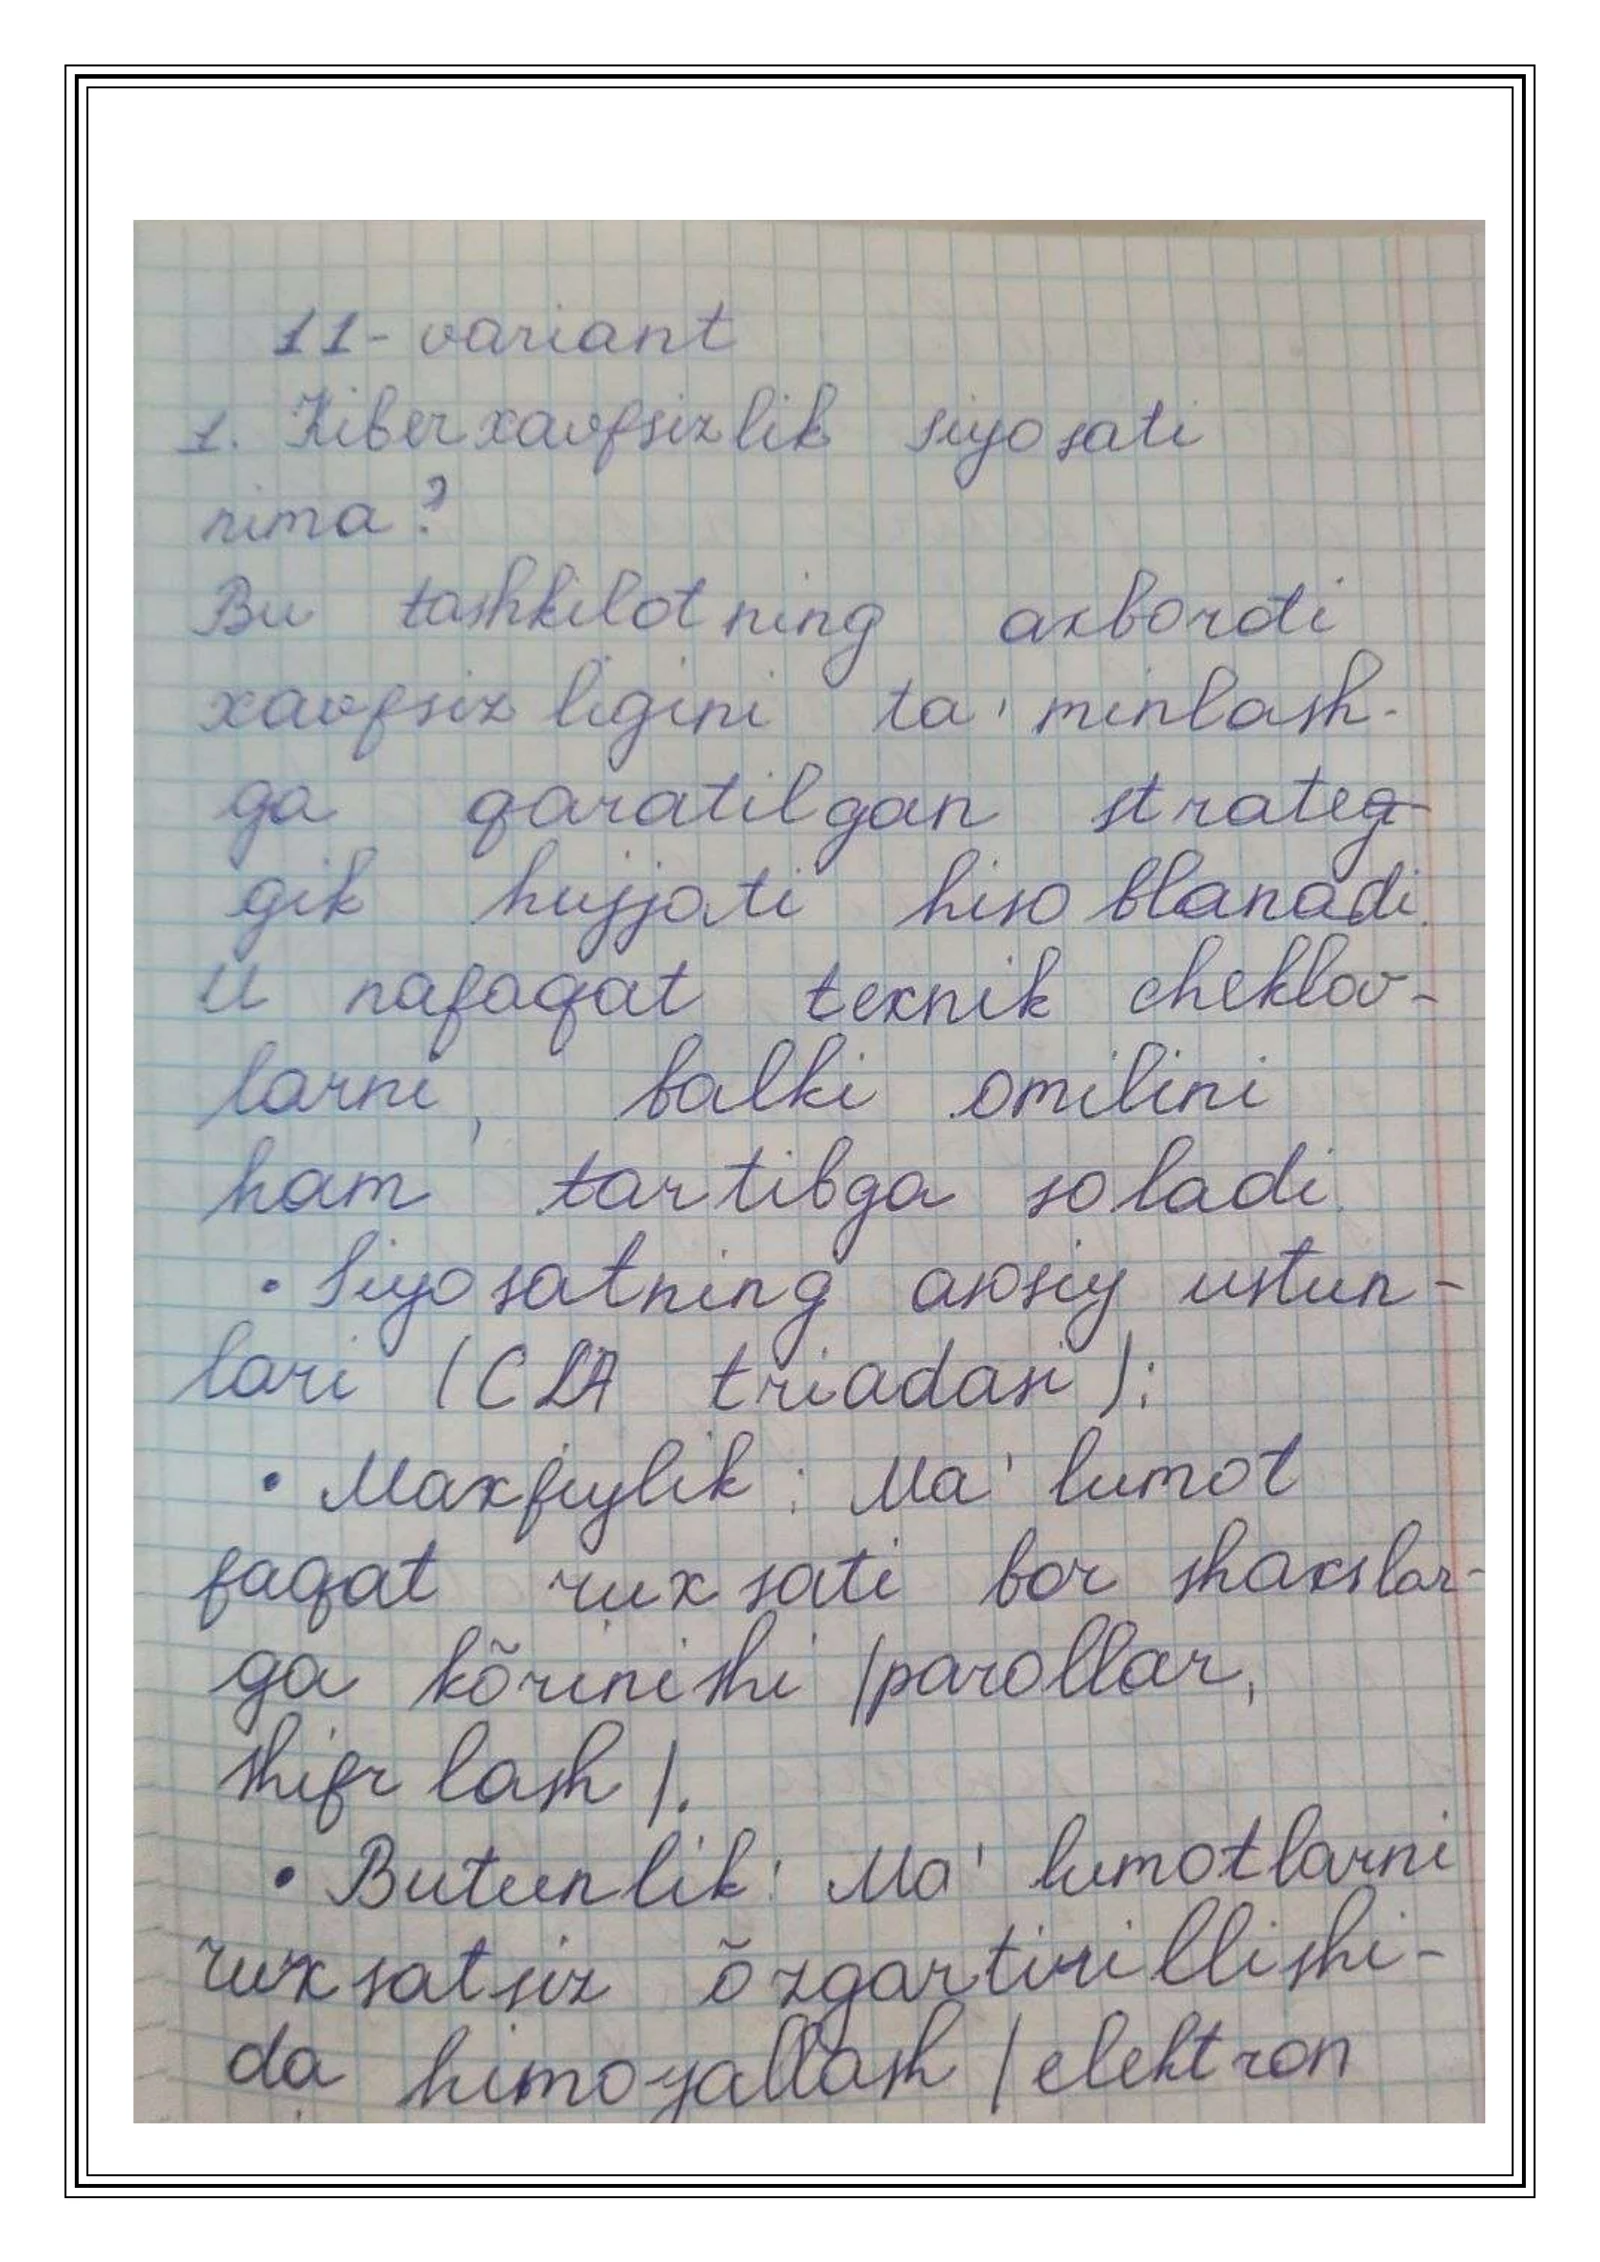 11- variant
1. Kiberxavfsizlik siyosati
nima?
Bu tashkilotning axboroti
xavfsizligini ta'minlash-
ga qaratilgan strateg-
gik hujjati hisoblanadi.
U nafaqat texnik cheklov-
larni, balki omilini
ham tartibga soladi.
• Siyosatning asosiy ustun-
lari (CIA triadasi):
• Maxfiylik: Ma'lumot
faqat ruxsati bor shaxslar-
ga kõrinishi (parollar,
shifrlash).
• Butunlik: Ma'lumotlarni
ruxsatsiz õzgartirillishi-
da himoyallash (elektron